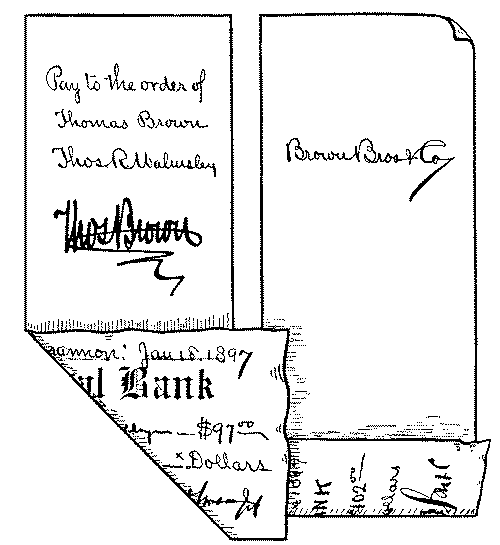 Pay to the order of
Thomas Brown
Thos R Walmsley
Thos Brown
Brown Bros & Co
Jan 18. 1897
al Bank
$97.00
Dollars
NK
102.00
ollars